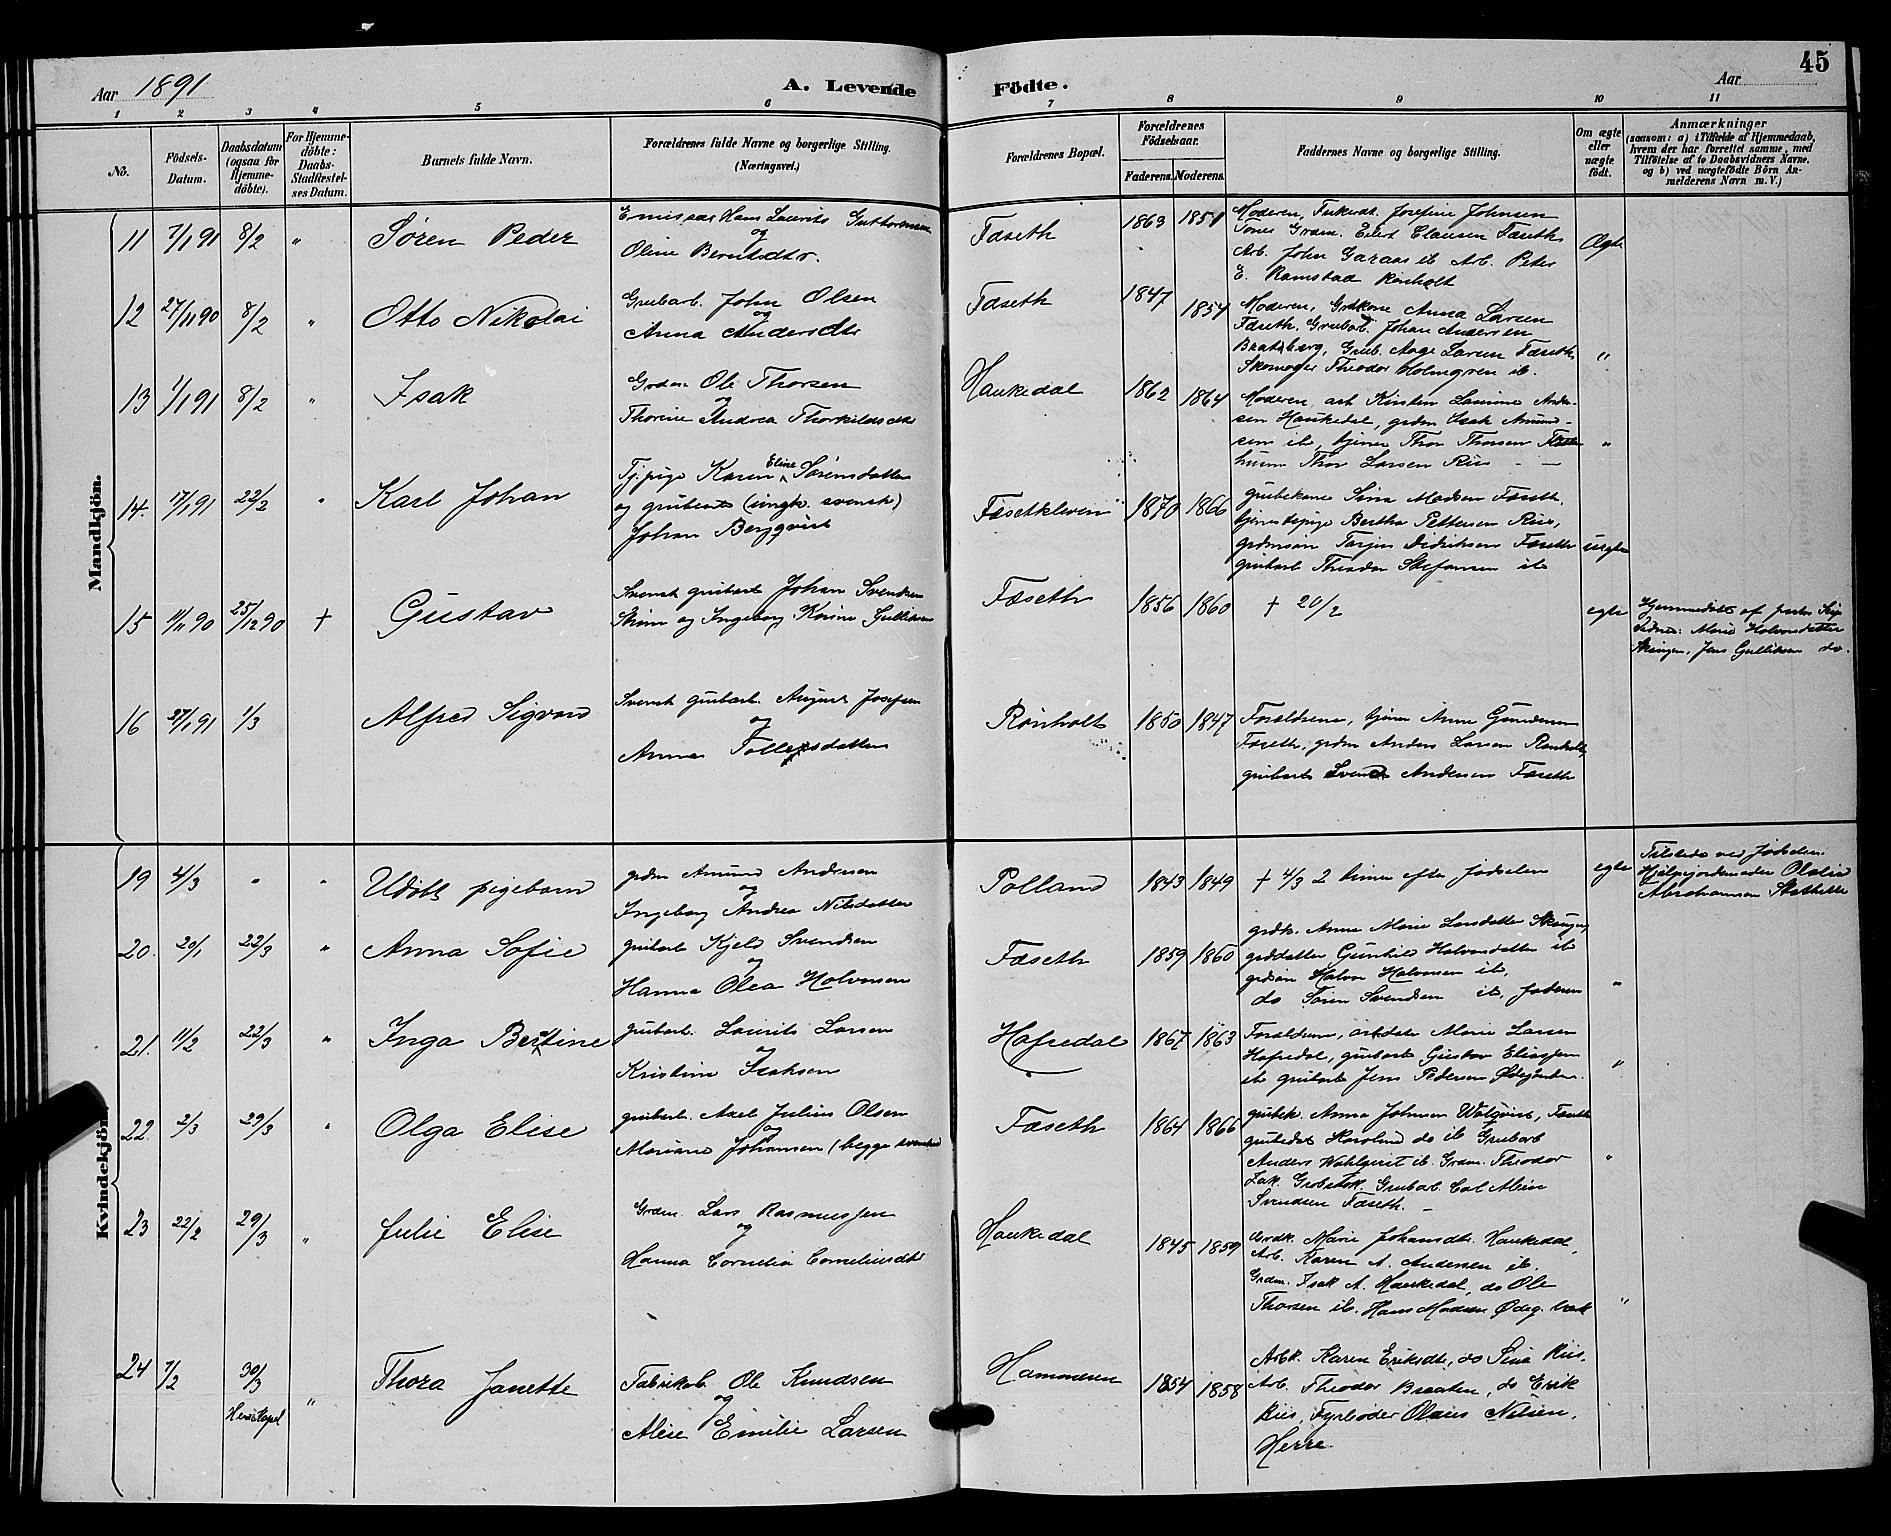 45
Aar 1891
A. Levende
Födte.
Aar
1 2 3 4 5 6 7 8 9 10 11
No.
Födsels-
Datum.
Daabsdatum
(ogsaa for
Hjemme-
döbte).
For Hjemme-
döbte:
Daabs-
Stadfestel-
ses Datum.
Barnets fulde Navn.
Forældrenes fulde Navne og borgerlige Stilling.
(Næringsvei.)
Forældrenes Bopæl.
Forældrenes
Födselsaar.
Faderens. Moderens.
Faddernes Navne og borgerlige Stilling.
Om ægte
eller
uægte
födt.
Anmærkninger
(saasom: a) i Tilfælde af Hjemmedaab,
hvem der har forrettet samme, med
Tilföielse af to Daabsvidners Navne,
og b) ved uægtefödte Börn An-
melderens Navn m. V.)
Mandkjön.
11 7/1 91 8/2 " Søren Peder
Emissær Hans Laurits Guthormsen
og
Oline Berntsdtr.
Fæseth 1863 1851
Moderen, Josefine Johnsen
Tones Grdm. Eilert Clausen Fæseth
Arb. John Garaas ib Arb. Peter
E. Ramstad Rönholt
Ægte
12 27/11 90 8/2 " Otto Nikolai
Grubarb. John Olsen
og
Anna Andersdtr
Fæseth 1847 1854
Moderen, Grdkone Anna Larsen
Fæseth, Grubarb. Johan Andersen
Bratsberg, Grub. Aage Larsen Fæseth,
Skomager Theodor Holmgren ib.
"
13 1/1 91 8/2 " Isak
Grdm. Ole Thorsen
og
Thorine Andrea Thorkildsdtr
Haukedal 1862 1864
Moderen, arb Kirsten Lauine Ander-
sen Haukedal, grdm Isak Amund-
sen ib, tjener Thor Thorsen
husm Thor Larsen Riis
"
14. 17/1 91 22/2 " Karl Johan
Tj. pige Karen Eline Sørensdatter
og grubearb (ungk. svensk)
Johan Bergqvist
Fæsetkleven 1870 1866
grubekone Sina Madsen Fæseth,
tjenestepige Bertha Pettersen Riis,
grdmsön Tarjer Didriksen Fæseth
grubarb Theodor Stefansen ib
uegte
15 11/11 90 25/12 90 + Gustav
Svensk grubarb Johan Svendsen
Ström og Ingeborg Karine Gulliksen
Fæseth 1856 1860 + 20/2 egte
Hjemmedöbt af
Vidner: Marie Halvorsdatter
Skougen, Jens Gulliksen do.
16 27/1 91 1/3 Alfred Sigvard
Svensk grubarb. August Josefsen
og
Anna Tollefsdatter
Rönholt 1850 1847
Forældrene, tjener Anne Gundersen
Fæseth, grdm Anders Larsen Rönholt,
grubarb Svend Andersen Fæseth
Kvindekjön.
19 4/3 " " Udöbt pigebarn
grdm Amund Andersen
og
Ingeborg Andrea Nilsdatter
Polland 1843 1849 + 4/3 2 timer efter fødselen egte
Tilstede ved fødselen:
Hjelpejordemoder Olalia
Abrahamsen
20. 20/1 22/3 " Anna Sofie
grubarb Kjeld Svendsen
og
Hanna Olea Halvorsen
Fæseth 1859 1860
grdk. Anne Marie Larsdatter Skougen,
grddatter Gunhild Halvorsdatter ib
grdsön Halvor Halvorsen ib,
do Sören Svendsen ib, faderen
"
21. 11/2 22/3 " Inga Bertine
grubarb. Laurits Larsen
og
Kristine Isaksen
Hafredal 1867 1863
Forældrene, arbdatr Marie Larsen
Hafredal, grubarb Gustav Eliassen
ib grubarb Jens Pedersen
"
22. 2/3 29/3 " Olga Elise
grubarb. Axel Julius Olsen
og
Mariane Johansen (begge svenske)
Fæseth 1864 1866
grubek. Anna Johnsen Walqvist, Fæseth
grubedat Karoline do ib Grubarb
Anders Wahlqvist ib. Grdm. Theodor
Isak. Grubarb. Carl Alvin
Svendsen Fæseth.
"
23 22/2 29/3 " Julie Elise
Grdm. Lars Rasmussen
og
Hanna Cornelia Corneliusdtr
Haukedal 1845 1859
Grdk. Marie Johansdtr. Haukedal,
Arb. Karen A. Andersen ib.
Grdm. Isak A. Haukedal, do Ole
Thorsen ib. Hans Madsen
"
24 7/2 30/3 " Thora Janette
Herre Kapel
Fabrikarb. Ole Knudsen
og
Alise Emilie Larsen
Hammeren 1854 1858
Arbk. Karen Eriksdtr, do Sina Riis,
Arb. Theodor Braaten, do Erik
Riis, Fyrböder Olaus Nilsen,
Herre.